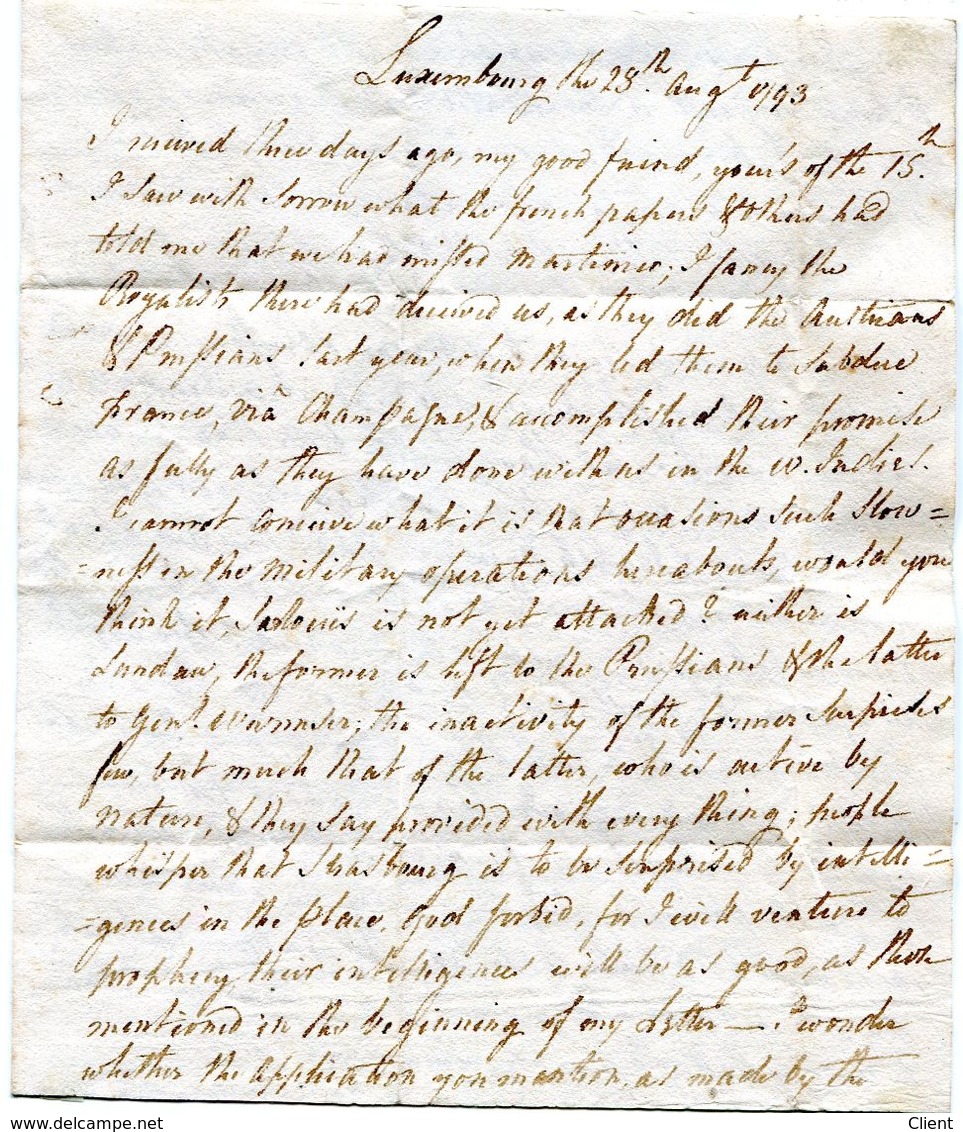 Luxembourg the 28th. Augt 1793
I recieved three days ago, my good friend, your's of the 15.th
I saw with sorrow what the french papers & others had
told me that we had missed Martinico; I fancy the
Royalists there had decieved us, as they did the Austrians
& Prussians last year, when they led them to subdue
france, viâ Champagne, & accomplished their promise
as fully as they have done with us in the W. Indies.
I cannot concieve what it is that occasions such slow=
=ness in the military operations hereabouts, would you
think it, Sarloüis is not yet attacked? neither is
Landau, the former is left to the Prussians & the latter
to Genl. Wurmser; the inactivity of the former surprises
few, but much that of the latter, who is active by
nature, & they say provided with every thing; people
whisper that Strasbourg is to be surprised by intelli=
=gences in the place. God forbid, for I will venture to
prophecy, their intelligences will be as good, as those
mentioned in the beginning of my Letter — I wonder
whether the application you mention, as made by the
Client